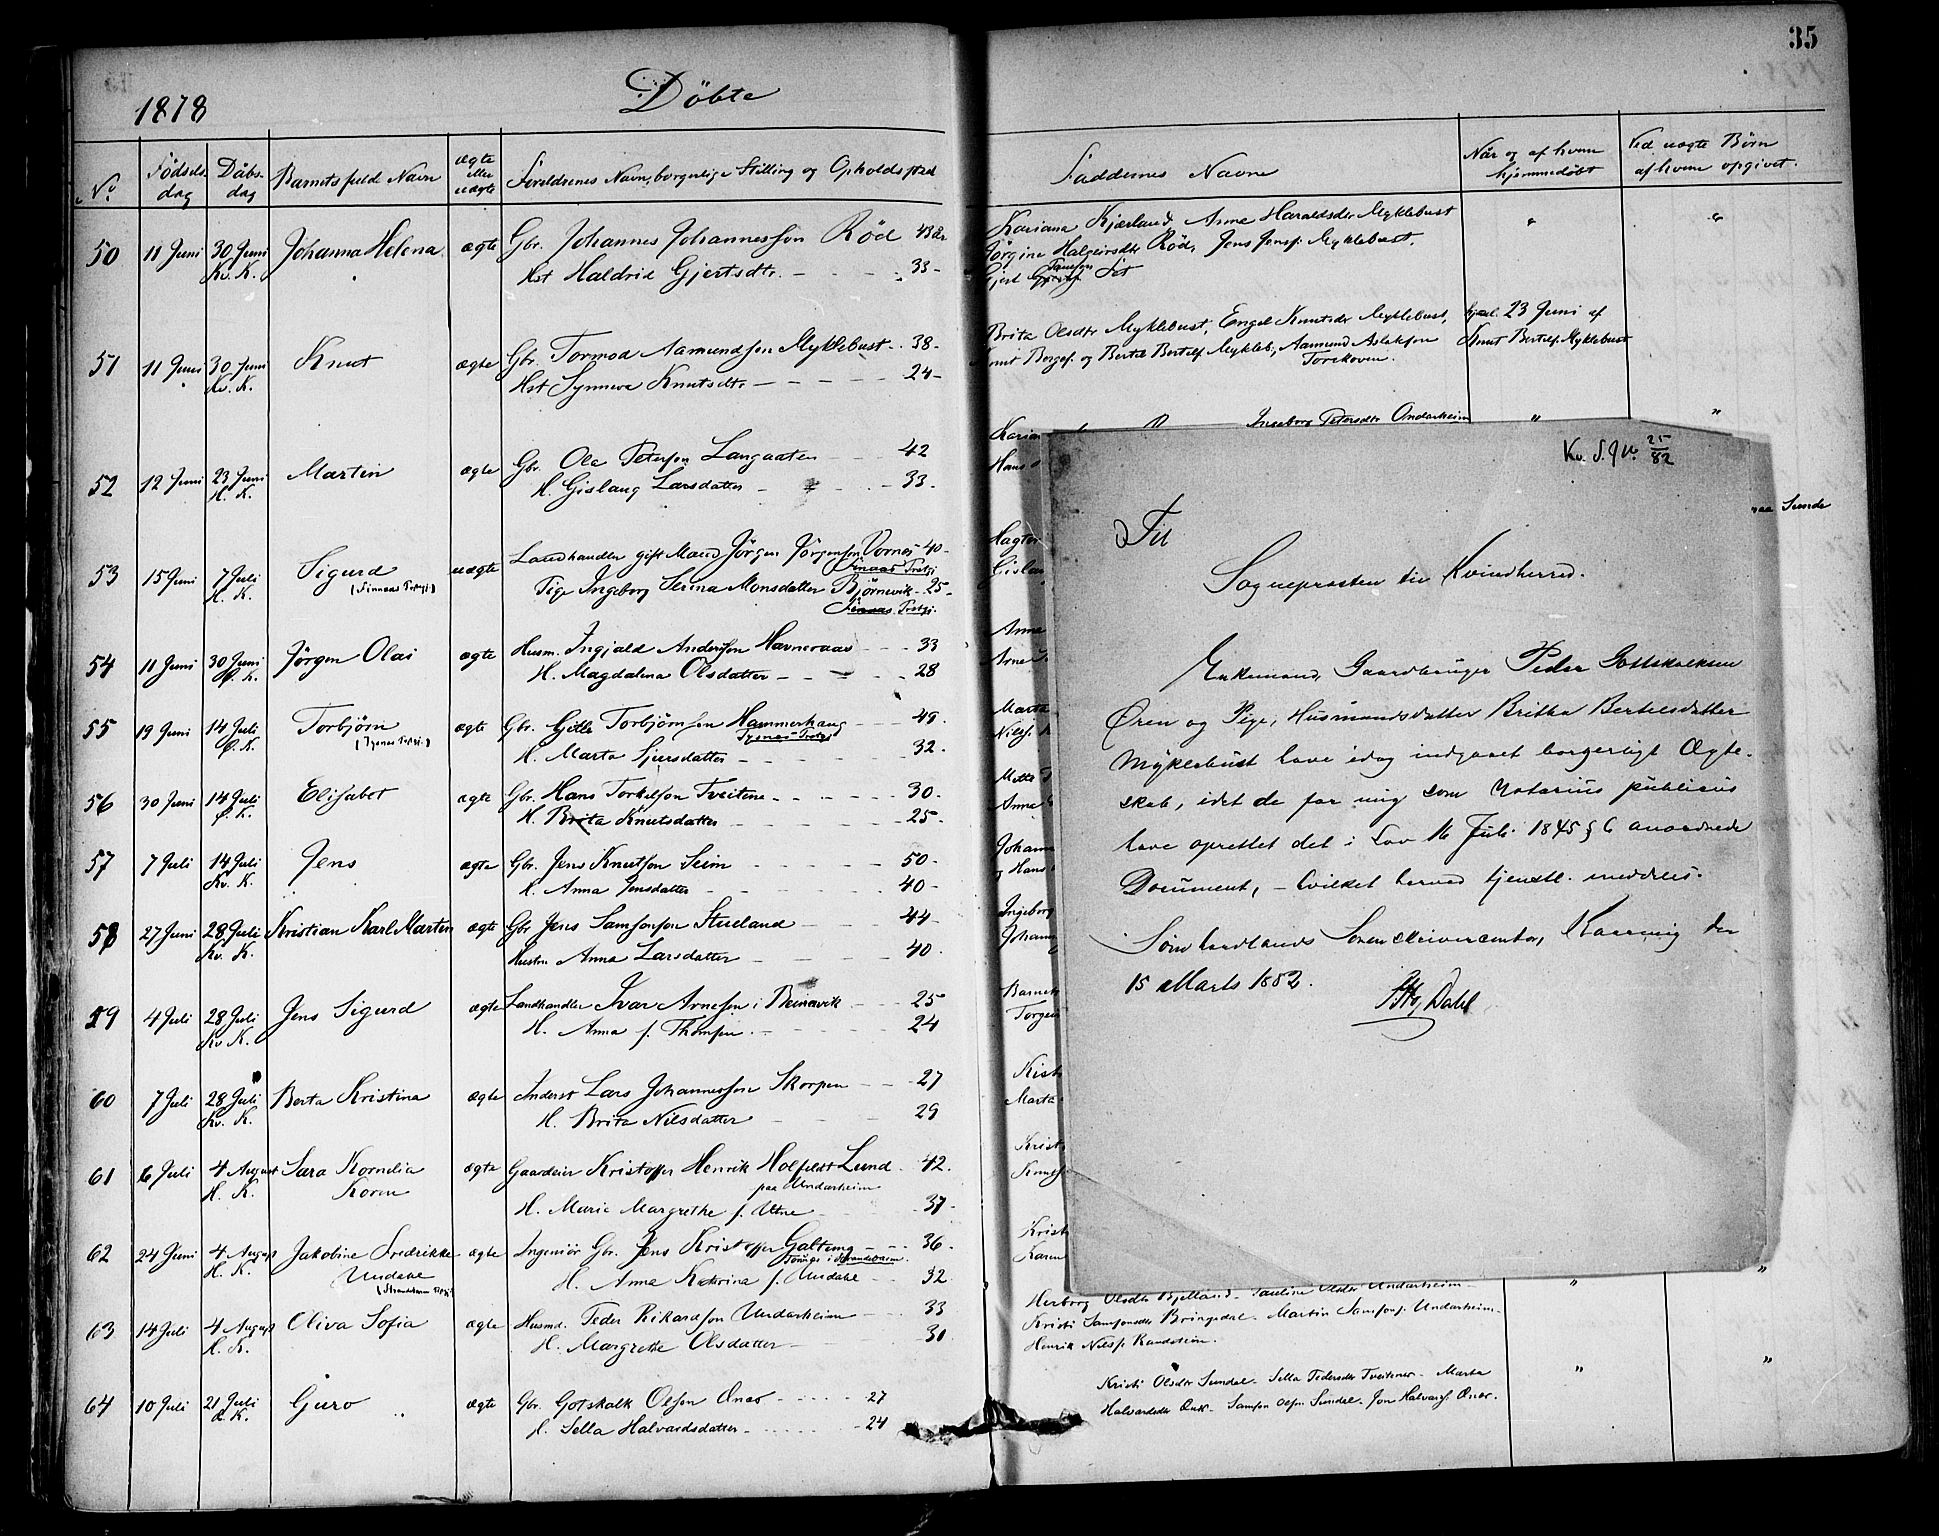 35
1878
Döbte
No.
Födsels-
dag
Dåbs-
dag
Barnets fulde Navn
ægte
eller
uægte
Forældrenes Navn, borgerlige Stilling og Opholdssted
Faddernes Navne
Når og af hvem
hjemmedöbt
Ved uægte Börn
af hvem opgivet.
50 11 Juni 30 Juni Johanna Helena ægte Gbr. Johannes Johannesson Röd 43 år
Kv. K. Hst Haldrid Gjertsdtr. 33
Kariana Kjærland Anna Haraldsdtr Myklebust
Jörgine Halgeirsdtr Röd, Jens Jensf. Myklebust.
51 11 Juni 30 Juni Knut ægte Gbr. Tormod Aamundson Myklebust 38
Kv. K. Hst Synneva Knutsdtr 24
Brita Olsdtr Myklebust, Engel Knutsdtr Myklebust, hjd. 23 Juni af
og Bertel Bertelf. Mykleb, Aamund Aslakson Knut Bertelf. Myklebust
52 12 Juni 23 Juni Martin ægte Gbr. Ole Peterson Langaaten 42
H. K. H. Gislaug Larsdatter 33
Ingeborg Petersdtr Undarheim
Hans
paa Sunde
53 15 Juni 7 Juli Sigurd uægte Landhandler gift Mand Jörgen Jörgenson Vornes 40
H. K. Pige Ingeborg Serina Monsdatter Björnevik 25
54 11 Juni 30 Juni Jörgen Olai ægte Husm. Ingjald Anderson Havneraas 33
H. Magdalena Olsdatter 28
Anna
Arne
55 19 Juni 14 Juli Torbjörn ægte Gbr. Gitle Torbjörnson Hammerhaug 49
H. Marta Sjursdatter 32
Marta
Nilsf.
56 30 Juni 14 Juli Elisabet ægte Gbr. Hans Torkelson Tveitene 30
H. Brita Knutsdatter 25
Anna
57 7 Juli 14 Juli Jens ægte Gbr. Jens Knutson Seim 50
Kv. K. H. Anna Jensdatter 40
Johann
og Hans
58 27 Juni 28 Juli Kristian Karl Martin ægte Gbr Jens Samsonson Stueland 44
Kv. K. Hustru Anna Larsdatter 40
Ingeborg
Johann
59 4 Juli 28 Juli Jens Sigurd ægte Landhandler Ivar Arneson i 25
Kv. K. H. Anna f. Thomsen 24
Barnets
Torgeir
60 7 Juli 28 Juli Berta Kristina ægte Inderst Lars Johannesson Skorpen 27
Kv. K. H. Brita Nilsdatter 29
Marta
61 6 Juli 4 August Sara Kornelia ægte Gaardeier Kristoffer Henrik Holfeldt Lund 42
H. K. Koren paa Undarheim
H. Marie Margrethe f. Utne 37
Krist
62 24 Juni 4 August Jakobine Fredrikke ægte Ingeniör Gbr. Jens Kristoffer Galtung 36
H. K. Undahl
H. Anna Katrina f. Undahl 32
Krist
Karen
63 14 Juli 4 August Oliva Sofia ægte Husmd. Peder Rikardson Undarheim 33
H. K. H. Margrethe Olsdatter 30
Herborg Olsdtr Bjelland. Pauline Olsdtr Undarheim
Kristi Samsonsdtr Bringedal. Martin Samsonf. Undarheim.
Henrik Nilsf.
64 10 Juli 21 Juli Guro ægte Gbr. Gotskalk Olson Ones 27
H. Sella Halvardsdatter 24
Kristi Olsdtr Sundal. Sella Pedersdtr Tveitnes. Marta
Halvardsdtr Samson Olsf. Sundal. Jon Halvardf. Ones.
Kv. S. J. No. 25/82
Til
Sognepræsten til Kvindherred.
Enkemand, Gaardbruger Peder Gottskalksen
Ören og Pige, Husmandsdatter Britha Bertelsdatter
Myklebust have idag indgaaet borgerligt Ægte-
skab, idet de for mig som Notarius publicus
have oprettet det i Lov 16 Juli 1845 § 6 anordnede
Document, - hvilket herved tjenstl. meddeles.
Söndhordlands Sorenskriverembede, den
15 Marts 1882.
Dahl